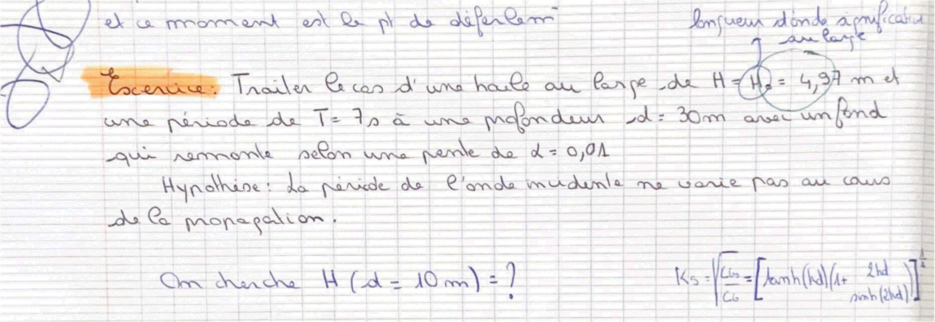 et ce moment est le pt de déferlem^t
longueur d'onde significative
au large
Exercice: Traiter le cas d'une houle au large de H = H₀ = 4,97 m et
une période de T = 7s à une profondeur d = 30m avec un fond
qui remonte selon une pente de α = 0,01
Hypothèse: La période de l'onde incidente ne varie pas au cours
de la propagation.
On cherche H (d = 10 m) = ?
Ks = √(CG₀/CG) = [tanh(kd)(1+ 2kd/sinh(2kd))]^½